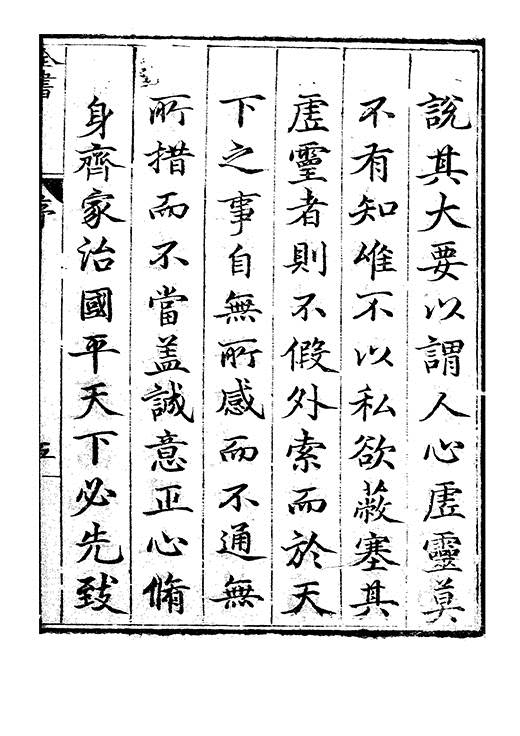 說其大要以謂人心虗靈莫
不有知惟不以私欲蔽塞其
虗靈者則不假外索而於天
下之事自無所感而不通無
所措而不當盖誠意正心脩
身齊家治國平天下必先致
全書
序
五